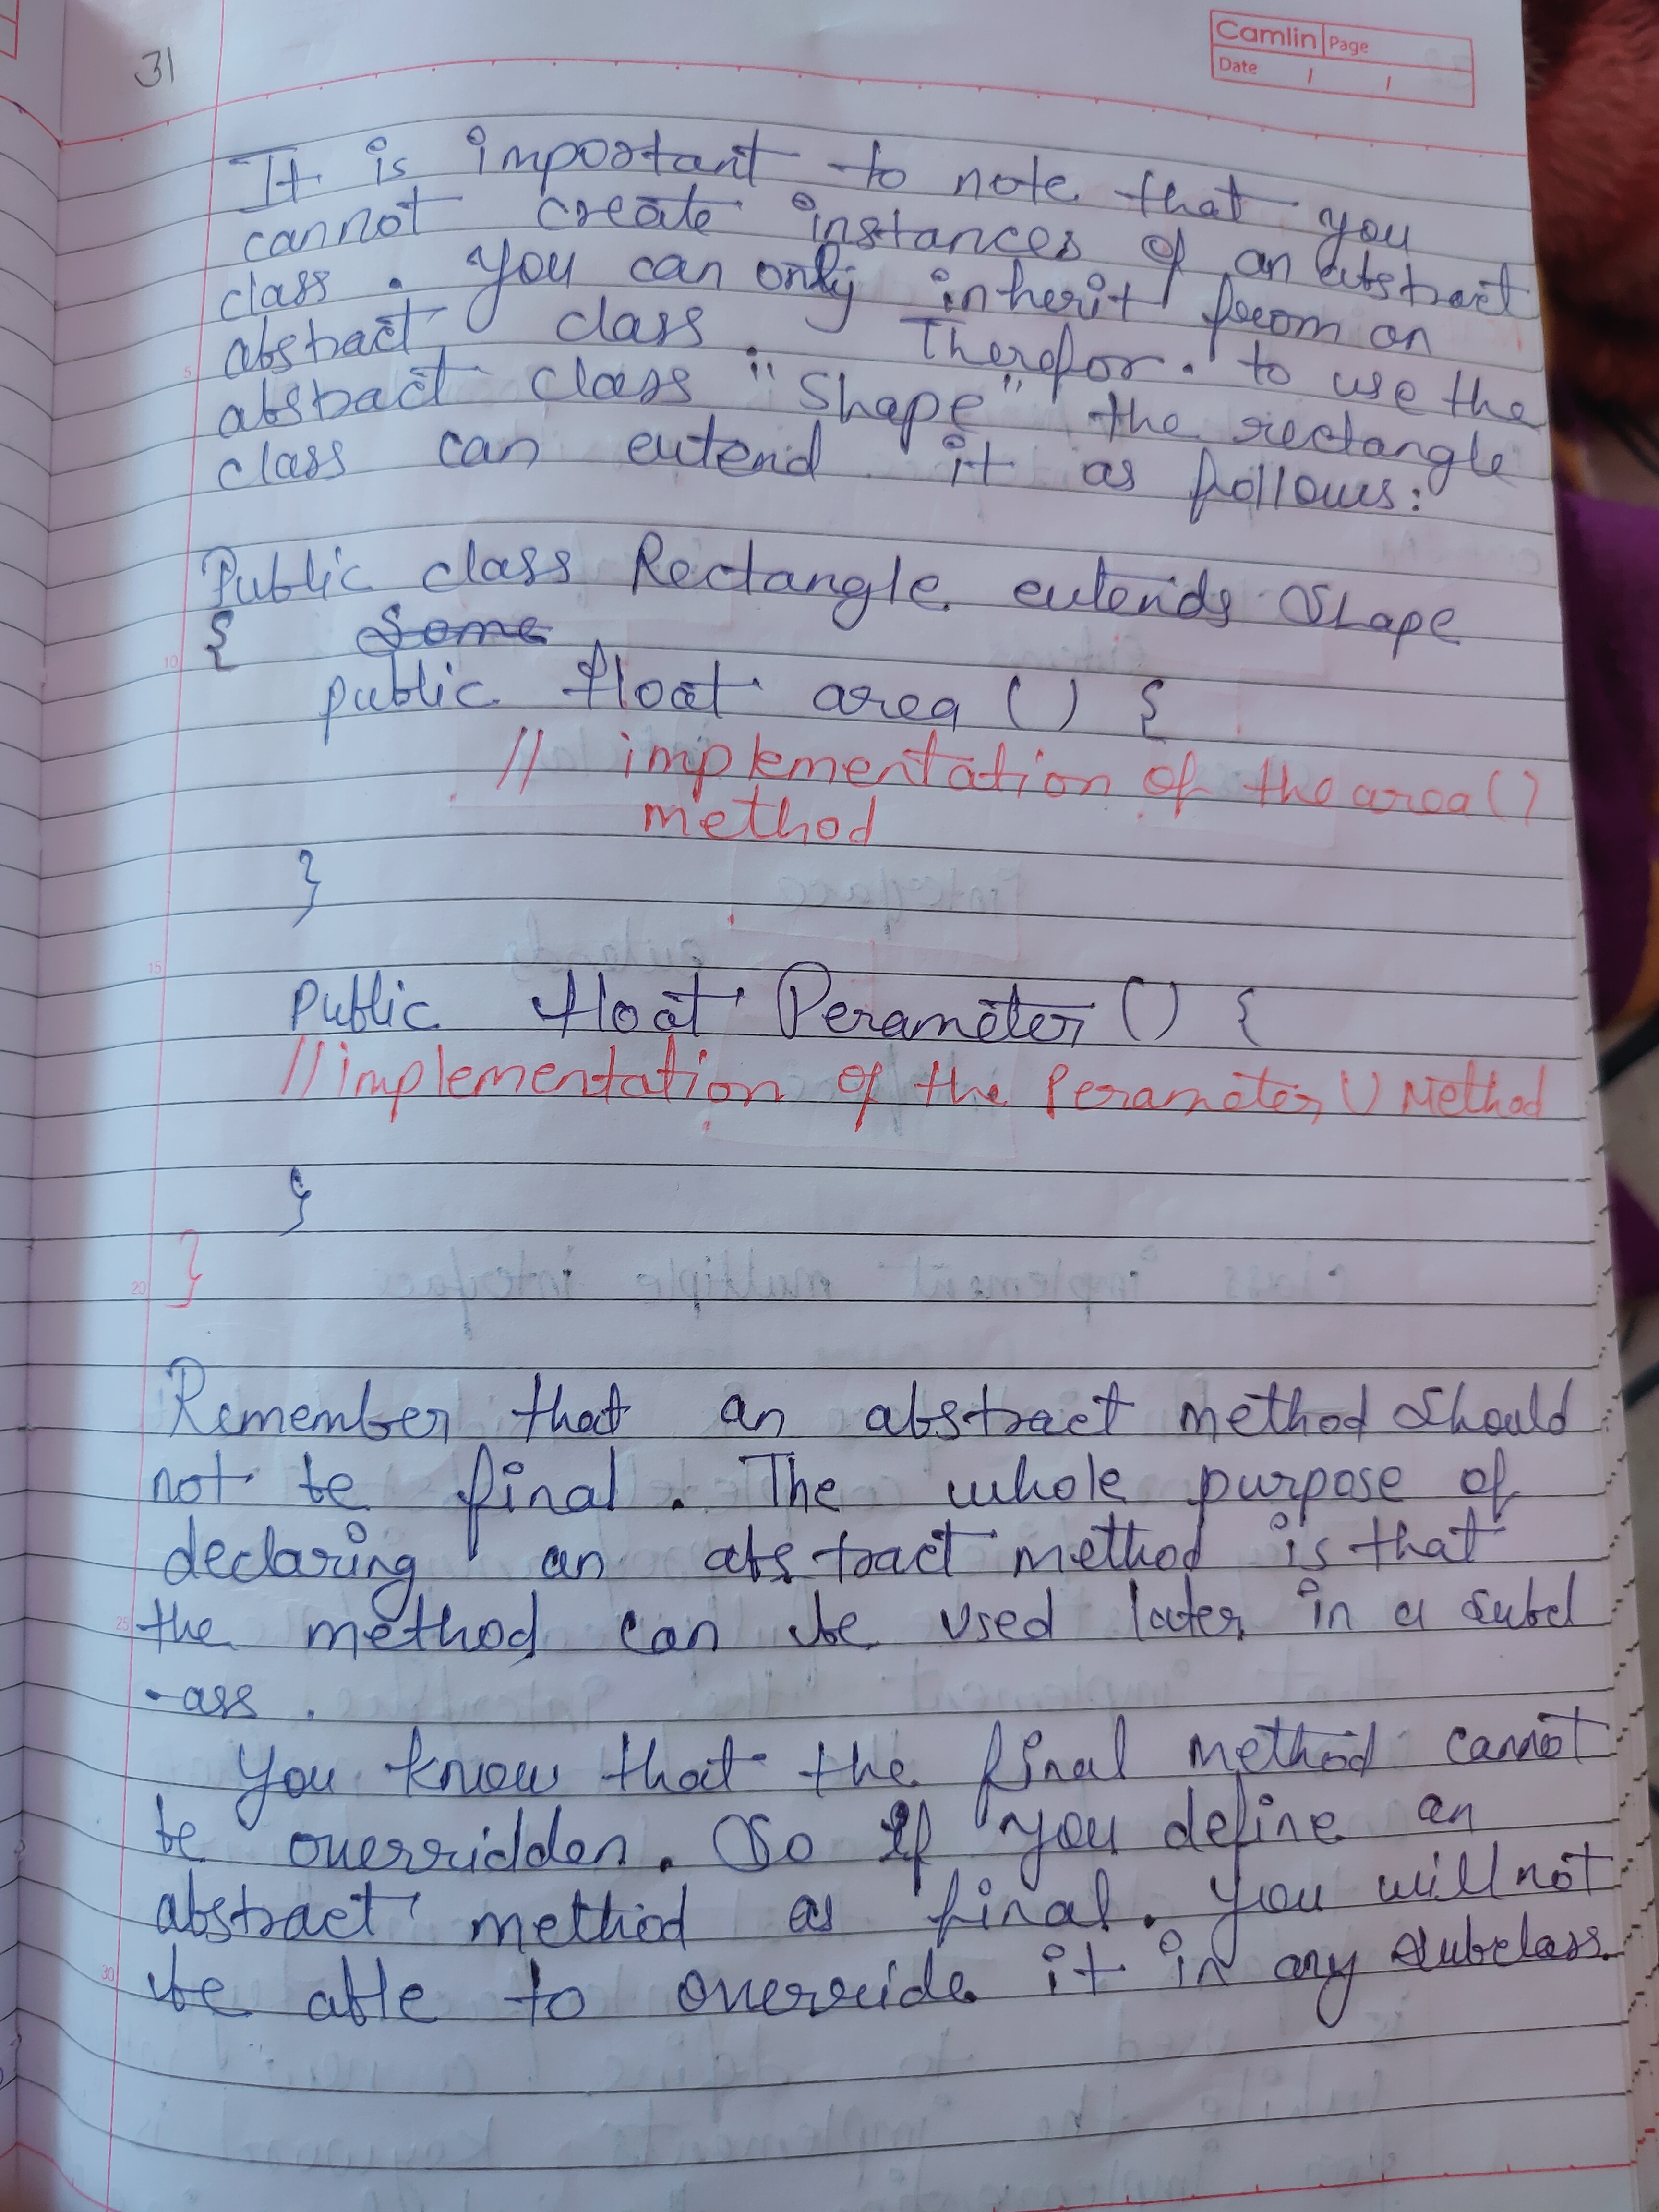 31
Camlin Page
Date / /
It is important to note that you
cannot create instances of an abstract
class. You can only inherit from an
abstract class. Therefor. to use the
abstract class "Shape" the rectangle
class can extend it as follows:
Public class Rectangle extends Shape
{ Some
public float area () {
// implementation of the area()
method
}
Public float Perameter () {
// implementation of the Perameter () Method
}
}
Remember that an abstract method should
not be final. The whole purpose of
declaring an abstract method is that
the method can be used later in a subcl
-ass.
You know that the final method cannot
be overridden. So if you define an
abstract method as final. you will not
be able to override it in any subclass.
5
10
15
20
25
30